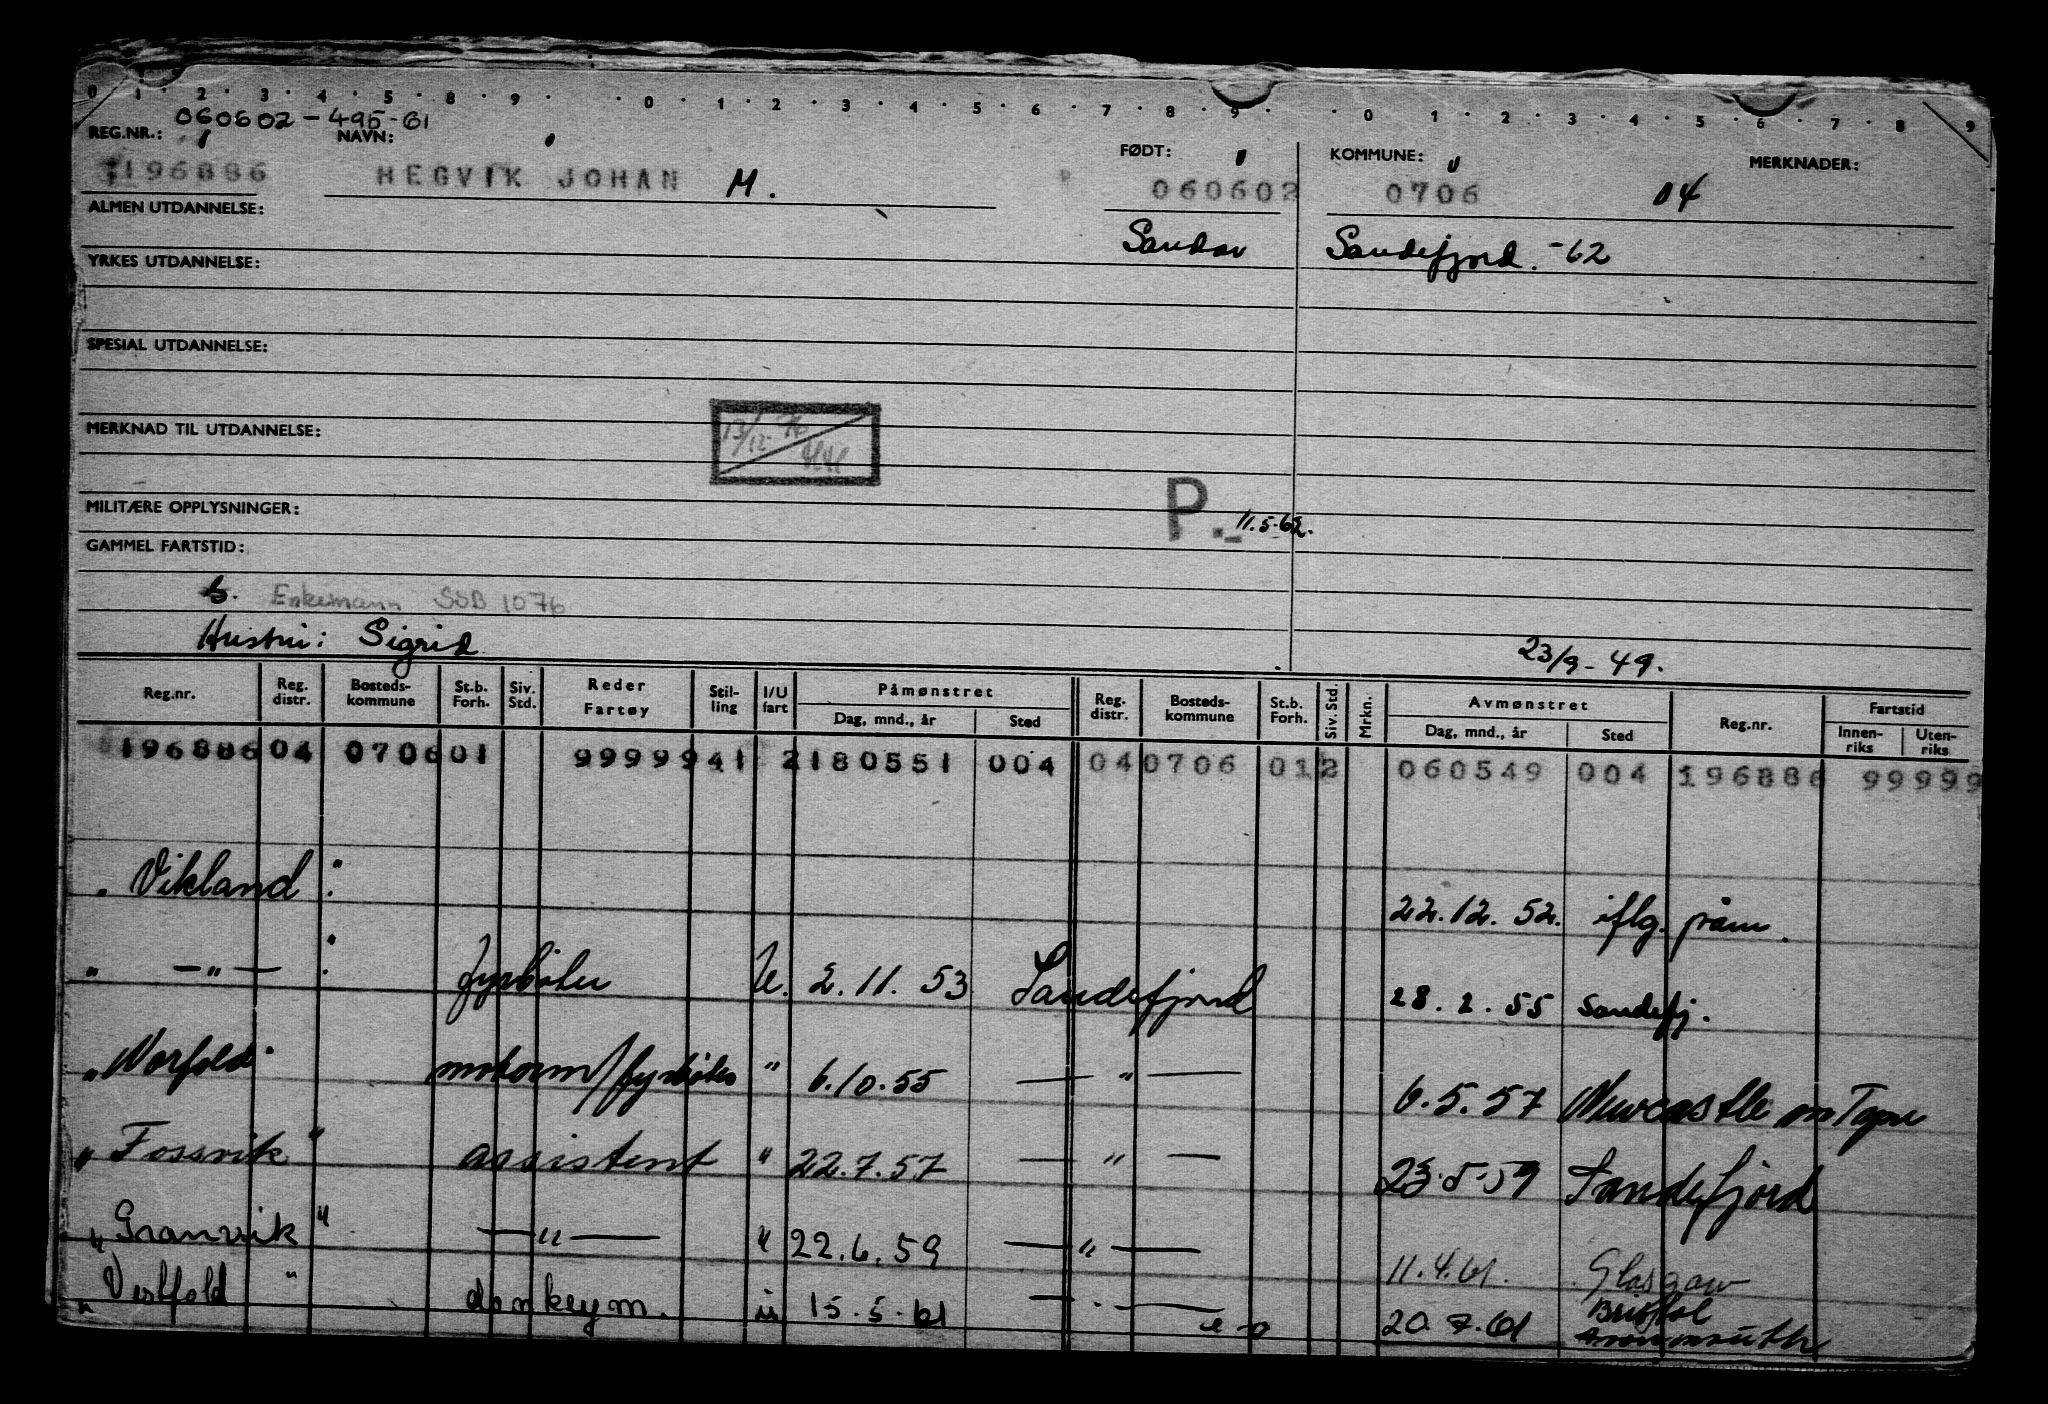 0 · 1 · 2 · 3 · 4 · 5 · 8 · 9 · · 0 · 1 · 2 · 3 · 4 · 5 · 6 · 7 · 8 · 9 · · 0 · 1 · 2 · 3 · 4 · 5 · 6 · 7 · 8 · 9
060602-495-61
REG.NR.: NAVN: FØDT: KOMMUNE: MERKNADER:
196886 HEGVIK JOHAN M. 060602 0706 04
ALMEN UTDANNELSE: Sandar Sandefjord. -62
YRKES UTDANNELSE:
SPESIAL UTDANNELSE:
MERKNAD TIL UTDANNELSE: 13/12
MILITÆRE OPPLYSNINGER: P. 11.5.62.
GAMMEL FARTSTID:
Enkemann SOB 1076
Hustru: Sigrid 23/9-49.
Reg.nr. Reg. distr. Bosteds-kommune St.b. Forh. Siv. Std. Reder Fartøy Stil-ling I/U fart Påmønstret Dag, mnd., år Sted Reg. distr. Bosteds-kommune St.b. Forh. Siv. Std. Mrkn. Avmønstret Dag, mnd., år Sted Reg.nr. Fartstid Innen-riks Uten-riks
196886 04 0706 01 99999 41 2 180551 004 04 0706 01 2 060549 004 196886 99999
" Vikland " 22.12.52. iflg. pråm.
" — " — " fyrbøter U. 2.11.53 Sandefjord 28.2.55 Sandefj.
" Norfold " motorm/fyrbøter " 6.10.55 — " — 6.5.57 Newcastle on Tyne
" Fossvik " assistent " 22.7.57 — " — 23.5.59 Sandefjord
" Granvik " — " — " 22.6.59 — " — 11.4.61. Glasgow
" Vestfold " donkeym. " 15.5.61 — " — 20.7.61 Bristol